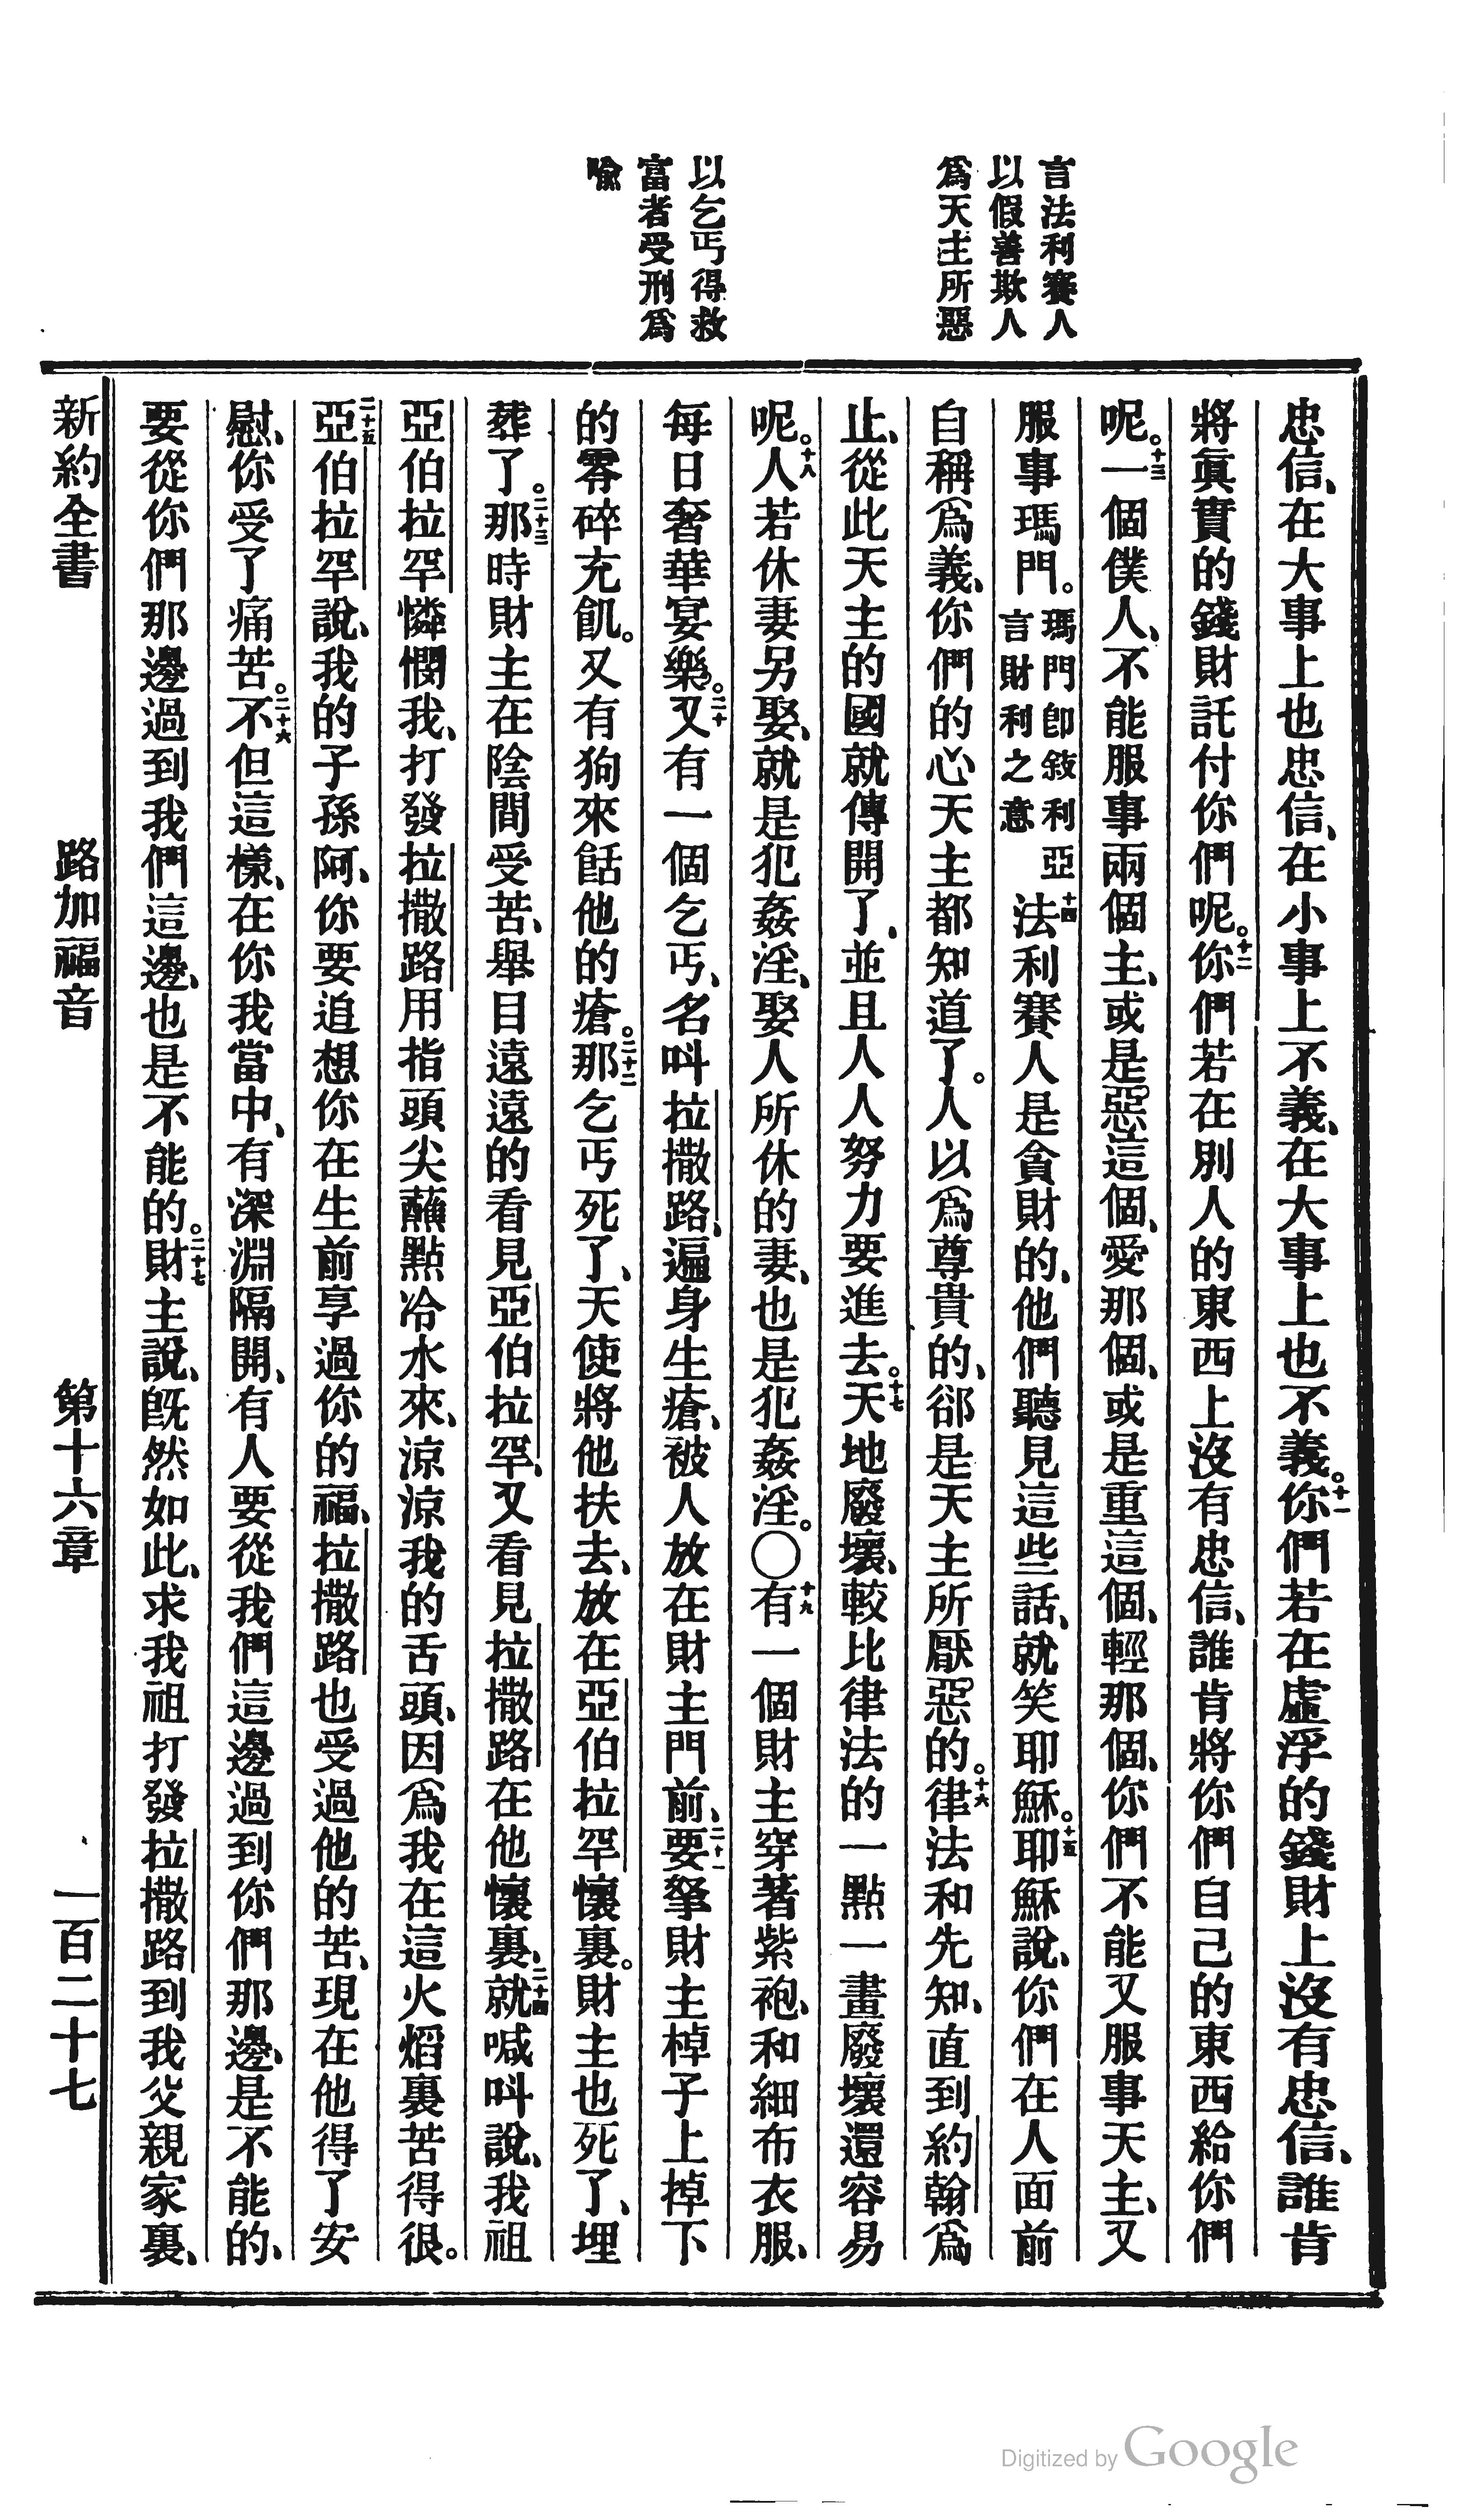 言法利賽人
以假善欺人
爲天主所惡
以乞丐得救
富者受刑爲
喩
忠信、在大事上也忠信、在小事上不義、在大事上也不義。十一你們若在虛浮的錢財上沒有忠信、誰肯
將眞實的錢財託付你們呢。十二你們若在別人的東西上沒有忠信、誰肯將你們自己的東西給你們
呢。十三一個僕人、不能服事兩個主、或是惡這個、愛那個、或是重這個、輕那個、你們不能又服事天主、又
服事瑪門。瑪門卽敘利亞言財利之意十四法利賽人是貪財的、他們聽見這些話、就笑耶穌。十五耶穌說、你們在人面前
自稱爲義、你們的心天主都知道了。人以爲尊貴的、卻是天主所厭惡的。十六律法和先知、直到約翰爲
止、從此天主的國就傳開了、並且人人努力要進去。十七天地廢壞、較比律法的一點一畫廢壞還容易
呢。十八人若休妻另娶、就是犯姦淫、娶人所休的妻、也是犯姦淫。〇十九有一個財主穿著紫袍、和細布衣服、
每日奢華宴樂。二十又有一個乞丐、名叫拉撒路、遍身生瘡、被人放在財主門前、二十一要拏財主棹子上掉下
的零碎充飢。又有狗來餂他的瘡。二十二那乞丐死了、天使將他扶去、放在亞伯拉罕懷裏。財主也死了、埋
葬了。二十三那時財主在陰間受苦、舉目遠遠的看見亞伯拉罕、又看見拉撒路在他懷裏、二十四就喊叫說、我祖
亞伯拉罕憐憫我、打發拉撒路用指頭尖蘸點冷水來、涼涼我的舌頭、因爲我在這火熖裏苦得很。
二十五亞伯拉罕說、我的子孫阿、你要追想你在生前享過你的福、拉撒路也受過他的苦、現在他得了安
慰、你受了痛苦。二十六不但這樣、在你我當中、有深淵隔開、有人要從我們這邊過到你們那邊、是不能的、
要從你們那邊過到我們這邊、也是不能的。二十七財主說、旣然如此、求我祖打發拉撒路到我父親家裏、
新約全書 路加福音 第十六章 一百二十七
Digitized by Google